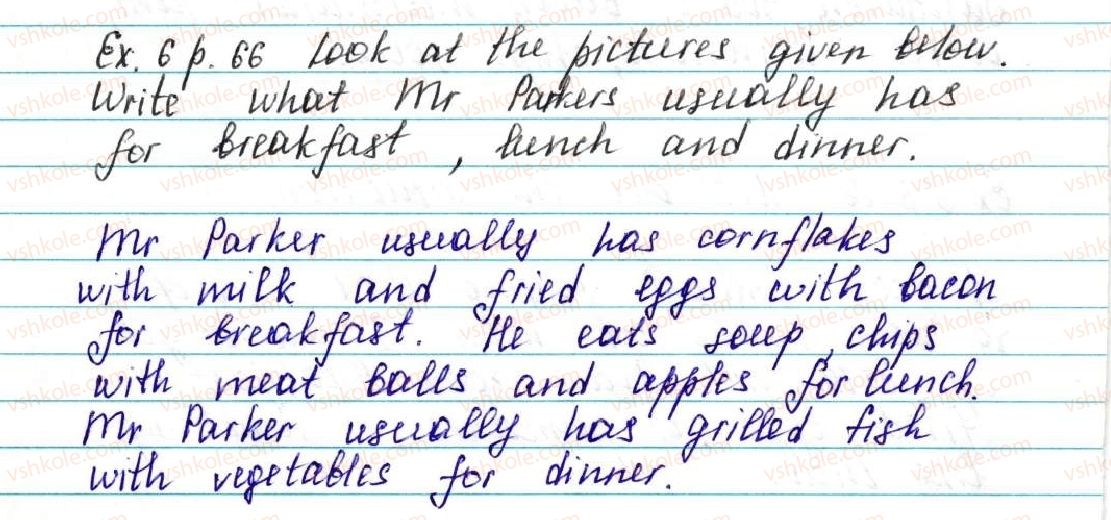 Ex. 6 p. 66 Look at the pictures given below.
Write what Mr Parkers usually has
for breakfast, lunch and dinner.
Mr Parker usually has cornflakes
with milk and fried eggs with bacon
for breakfast. He eats soup, chips
with meat balls and apples for lunch.
Mr Parker usually has grilled fish
with vegetables for dinner.